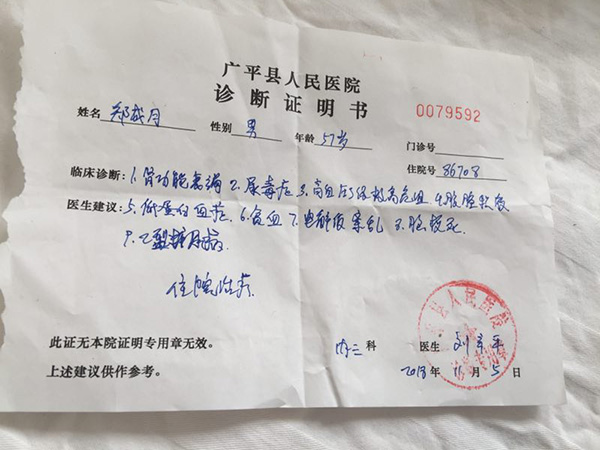 广平县人民医院
诊断证明书
0079592
姓名 郑成月 性别 男 年龄 57岁 门诊号
住院号 86708
临床诊断：1.肾功能衰竭 2.尿毒症 3.高血压3级极高危组 4.
医生建议：5.低蛋白血症 6.贫血 7.电解质紊乱 8.脑梗死
9.2型糖尿病
住院治疗
此证无本院证明专用章无效。
内三 科 医生 刘
上述建议供作参考。
2018年11月5日
县人民医院